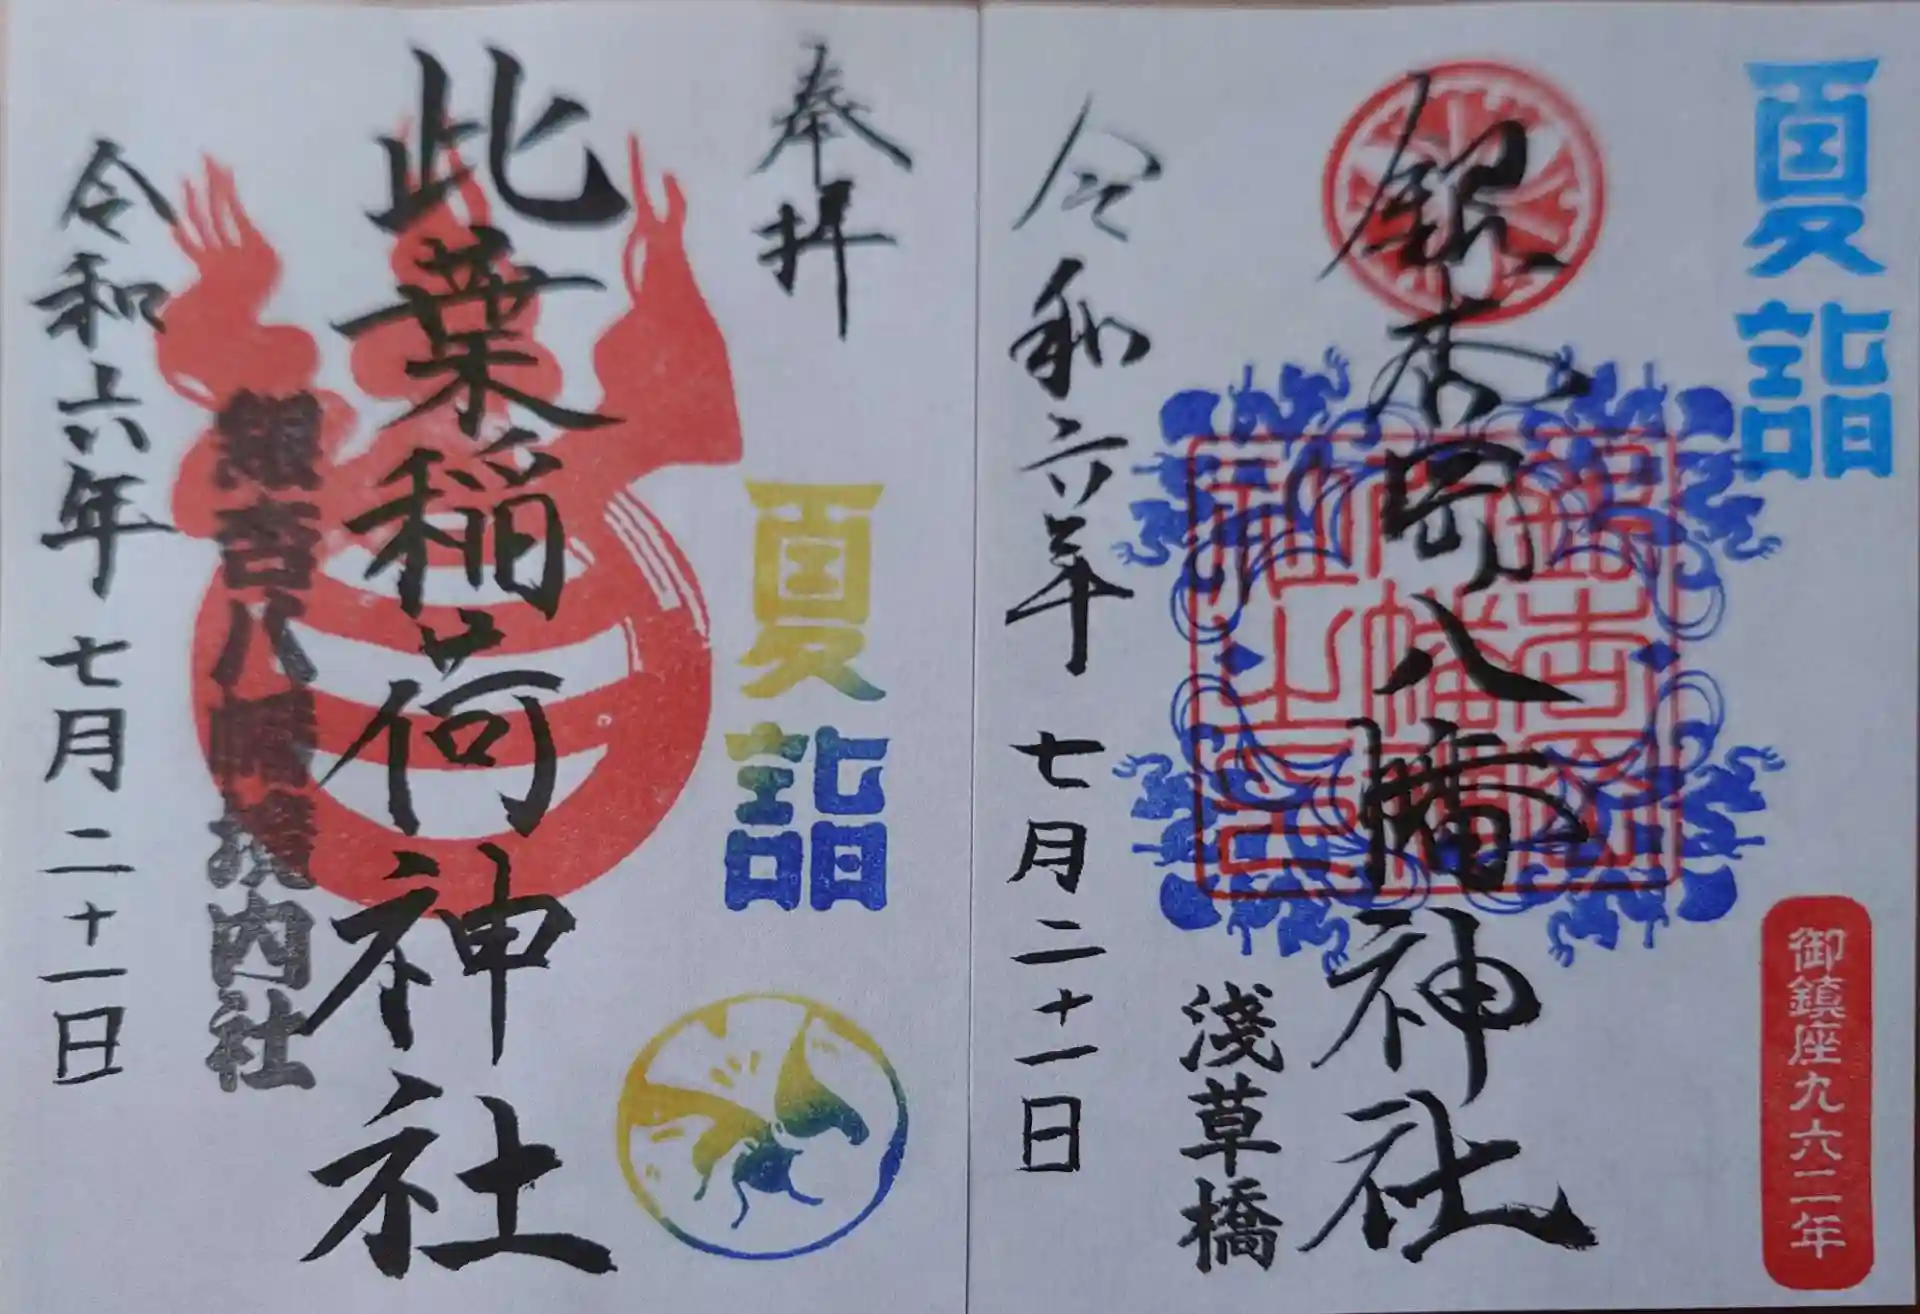 夏詣
御鎮座九六二年
銀杏岡八幡神社
淺草橋
令和六年 七月二十一日
奉拝
夏詣
此葉稲荷神社
銀杏八幡境内社
令和六年 七月二十一日